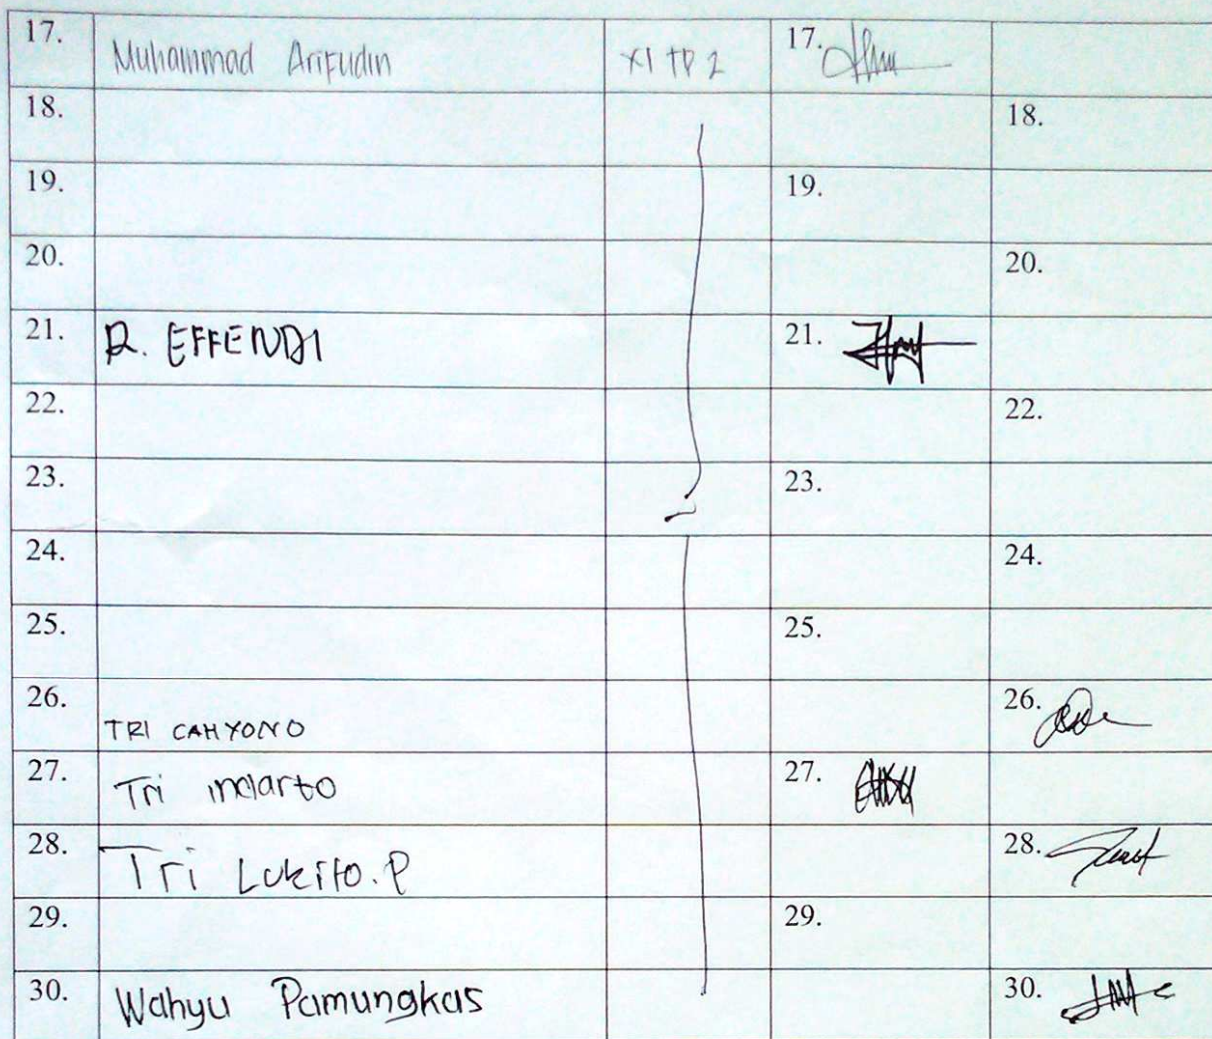 17. Muhammad Arifudin XI TP 2 17.
18. 18.
19. 19.
20. 20.
21. R. EFFENDI 21.
22. 22.
23. 23.
24. 24.
25. 25.
26. TRI CAHYONO 26.
27. Tri indarto 27.
28. Tri Lukito. P 28.
29. 29.
30. Wahyu Pamungkas 30.